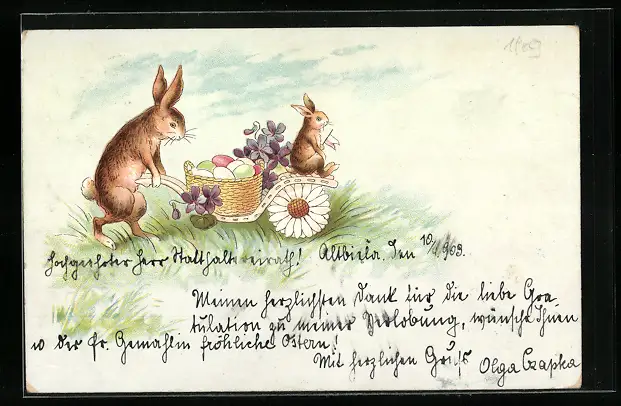 Hochgeehrter Herr Statthaltereirath! Altbiela, den 10/4 903.
Meinen herzlichsten Dank für die liebe Gra-
tulation zu meiner Verlobung, wünsche Ihnen
u der fr. Gemahlin fröhliche Ostern!
Mit herzlichen Gruß Olga Czapka